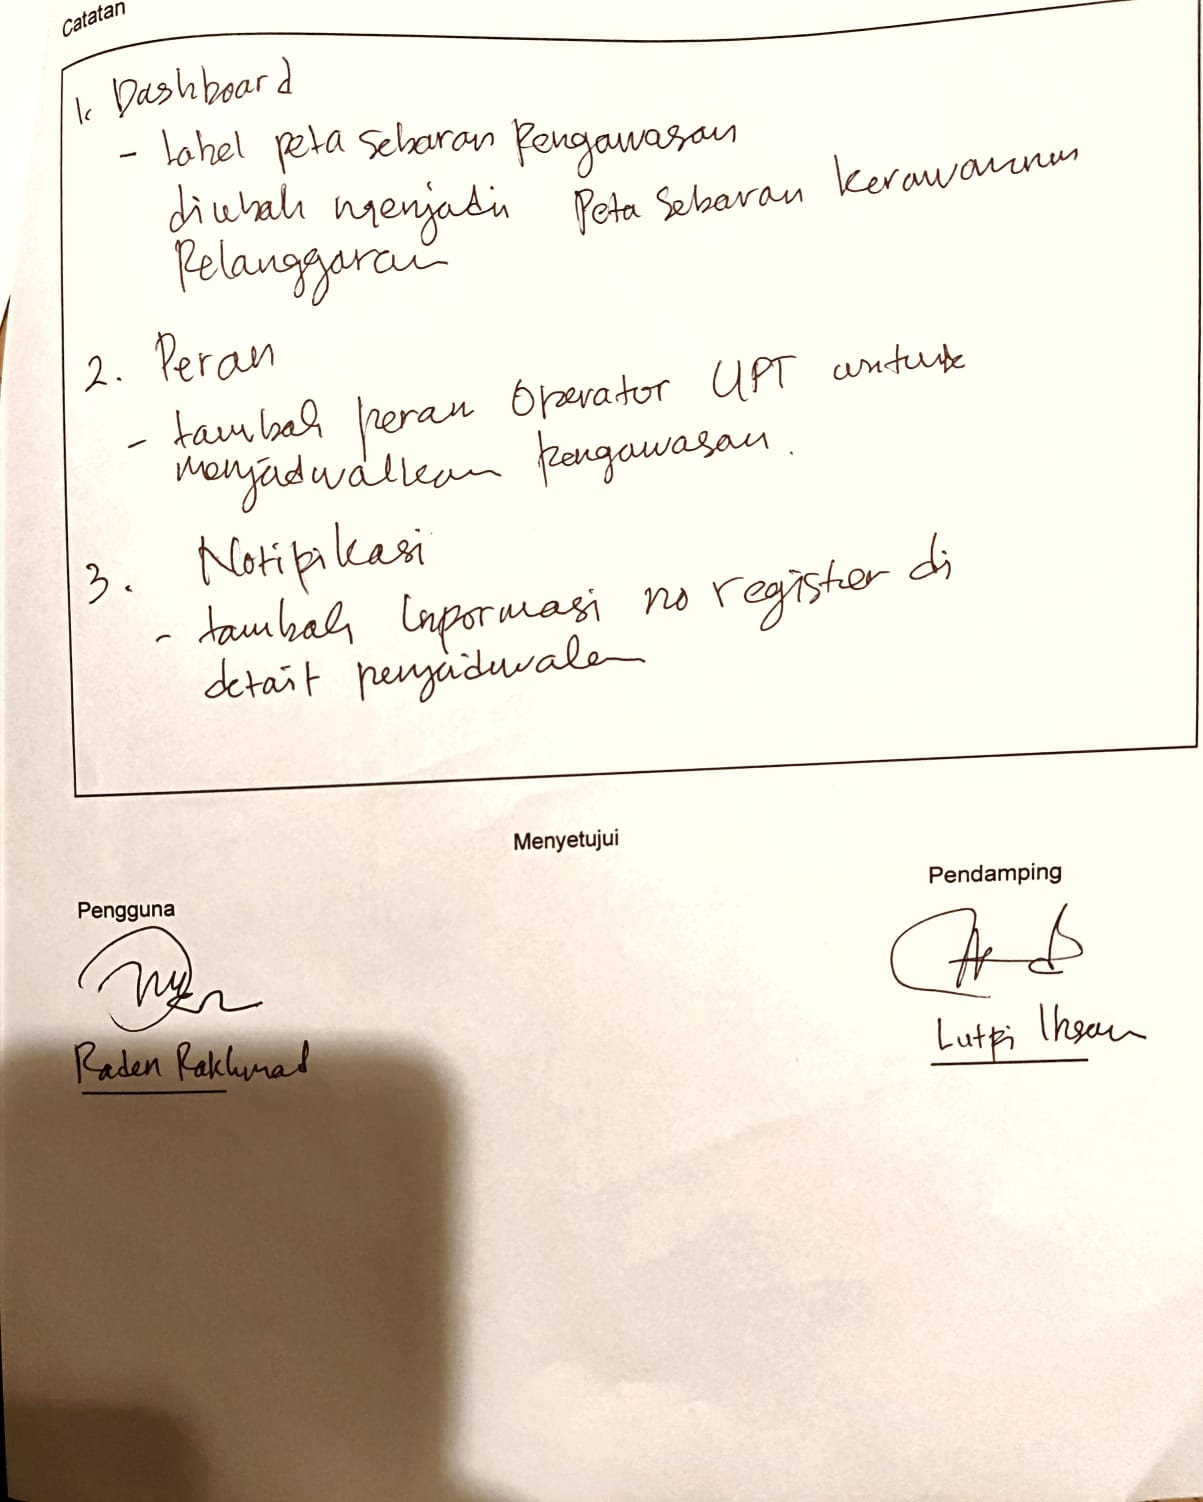 Catatan
1. Dashboard
- Label peta sebaran Pengawasan
diubah menjadi Peta Sebaran kerawanan
Pelanggaran
2. Peran
- tambah peran Operator UPT untuk
menjadwalkan pengawasan.
3. Notipikasi
- tambah Inpormasi no register di
detail penjadwalan
Menyetujui
Pendamping
Pengguna
Lutpi Ihsan
Raden Rakhmad